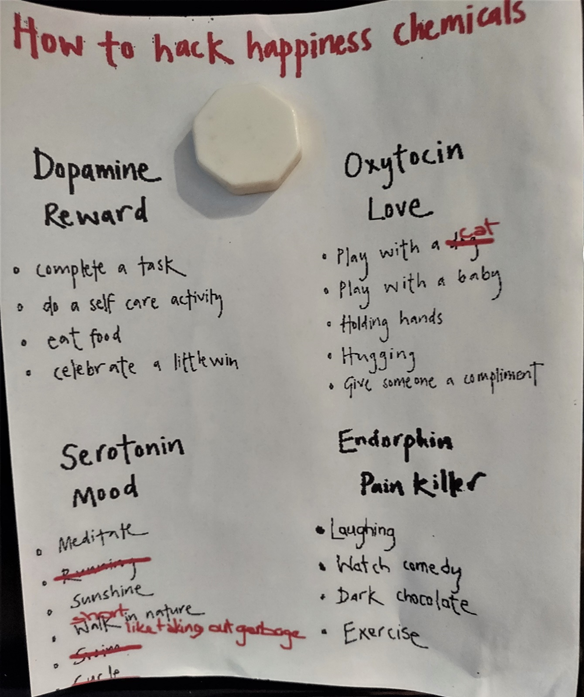 How to hack happiness chemicals
Dopamine
Reward
• complete a task
• do a self care activity
• eat food
• celebrate a little win
Oxytocin
Love
• Play with a dog cat
• Play with a baby
• Holding hands
• Hugging
• Give someone a compliment
Serotonin
Mood
• Meditate
• Running
• Sunshine
short
• Walk in nature
like taking out garbage
• Swim
• Cycle
Endorphin
Pain killer
• Laughing
• Watch comedy
• Dark chocolate
• Exercise